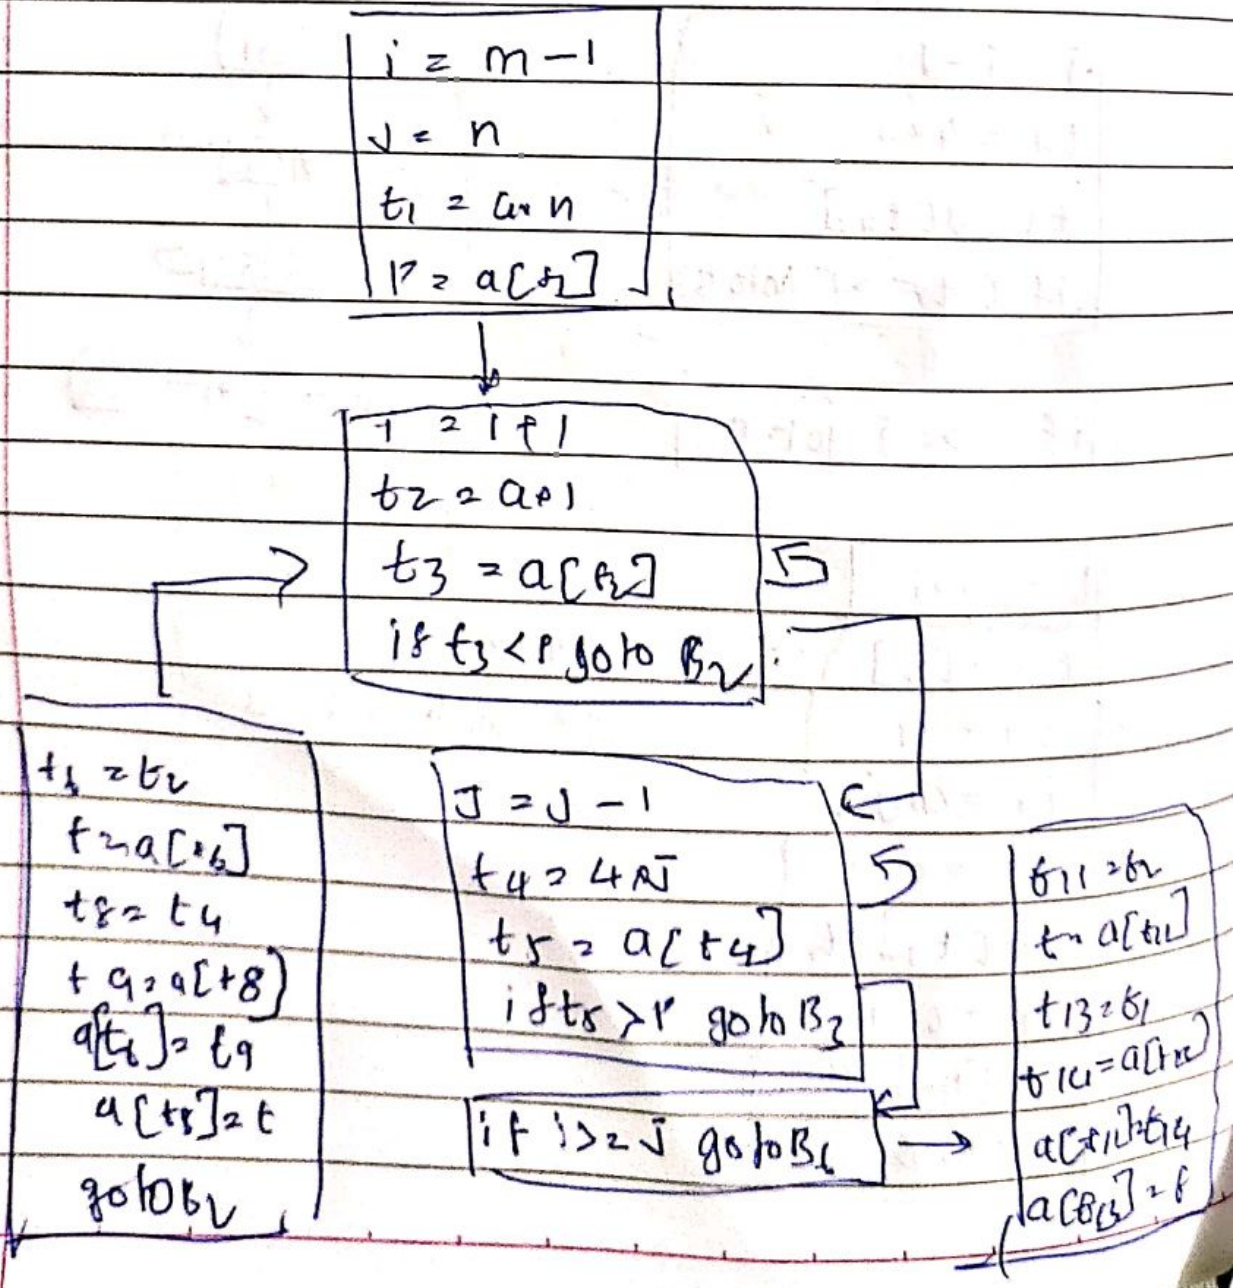 i = m - 1
J = n
t1 = 4* n
P = a[t1]
i = i + 1
t2 = a*1
t3 = a[t2]
if t3 < P goto B2
t6 = t2
t = a[t6]
t8 = t4
t9 = a[t8]
a[t6] = t9
a[t8] = t
goto B2
J = J - 1
t4 = 4*J
t5 = a[t4]
if t5 > P goto B3
if i >= J goto B6
t11 = t2
t = a[t11]
t13 = t1
t14 = a[t13]
a[t11] = t14
a[t13] = t